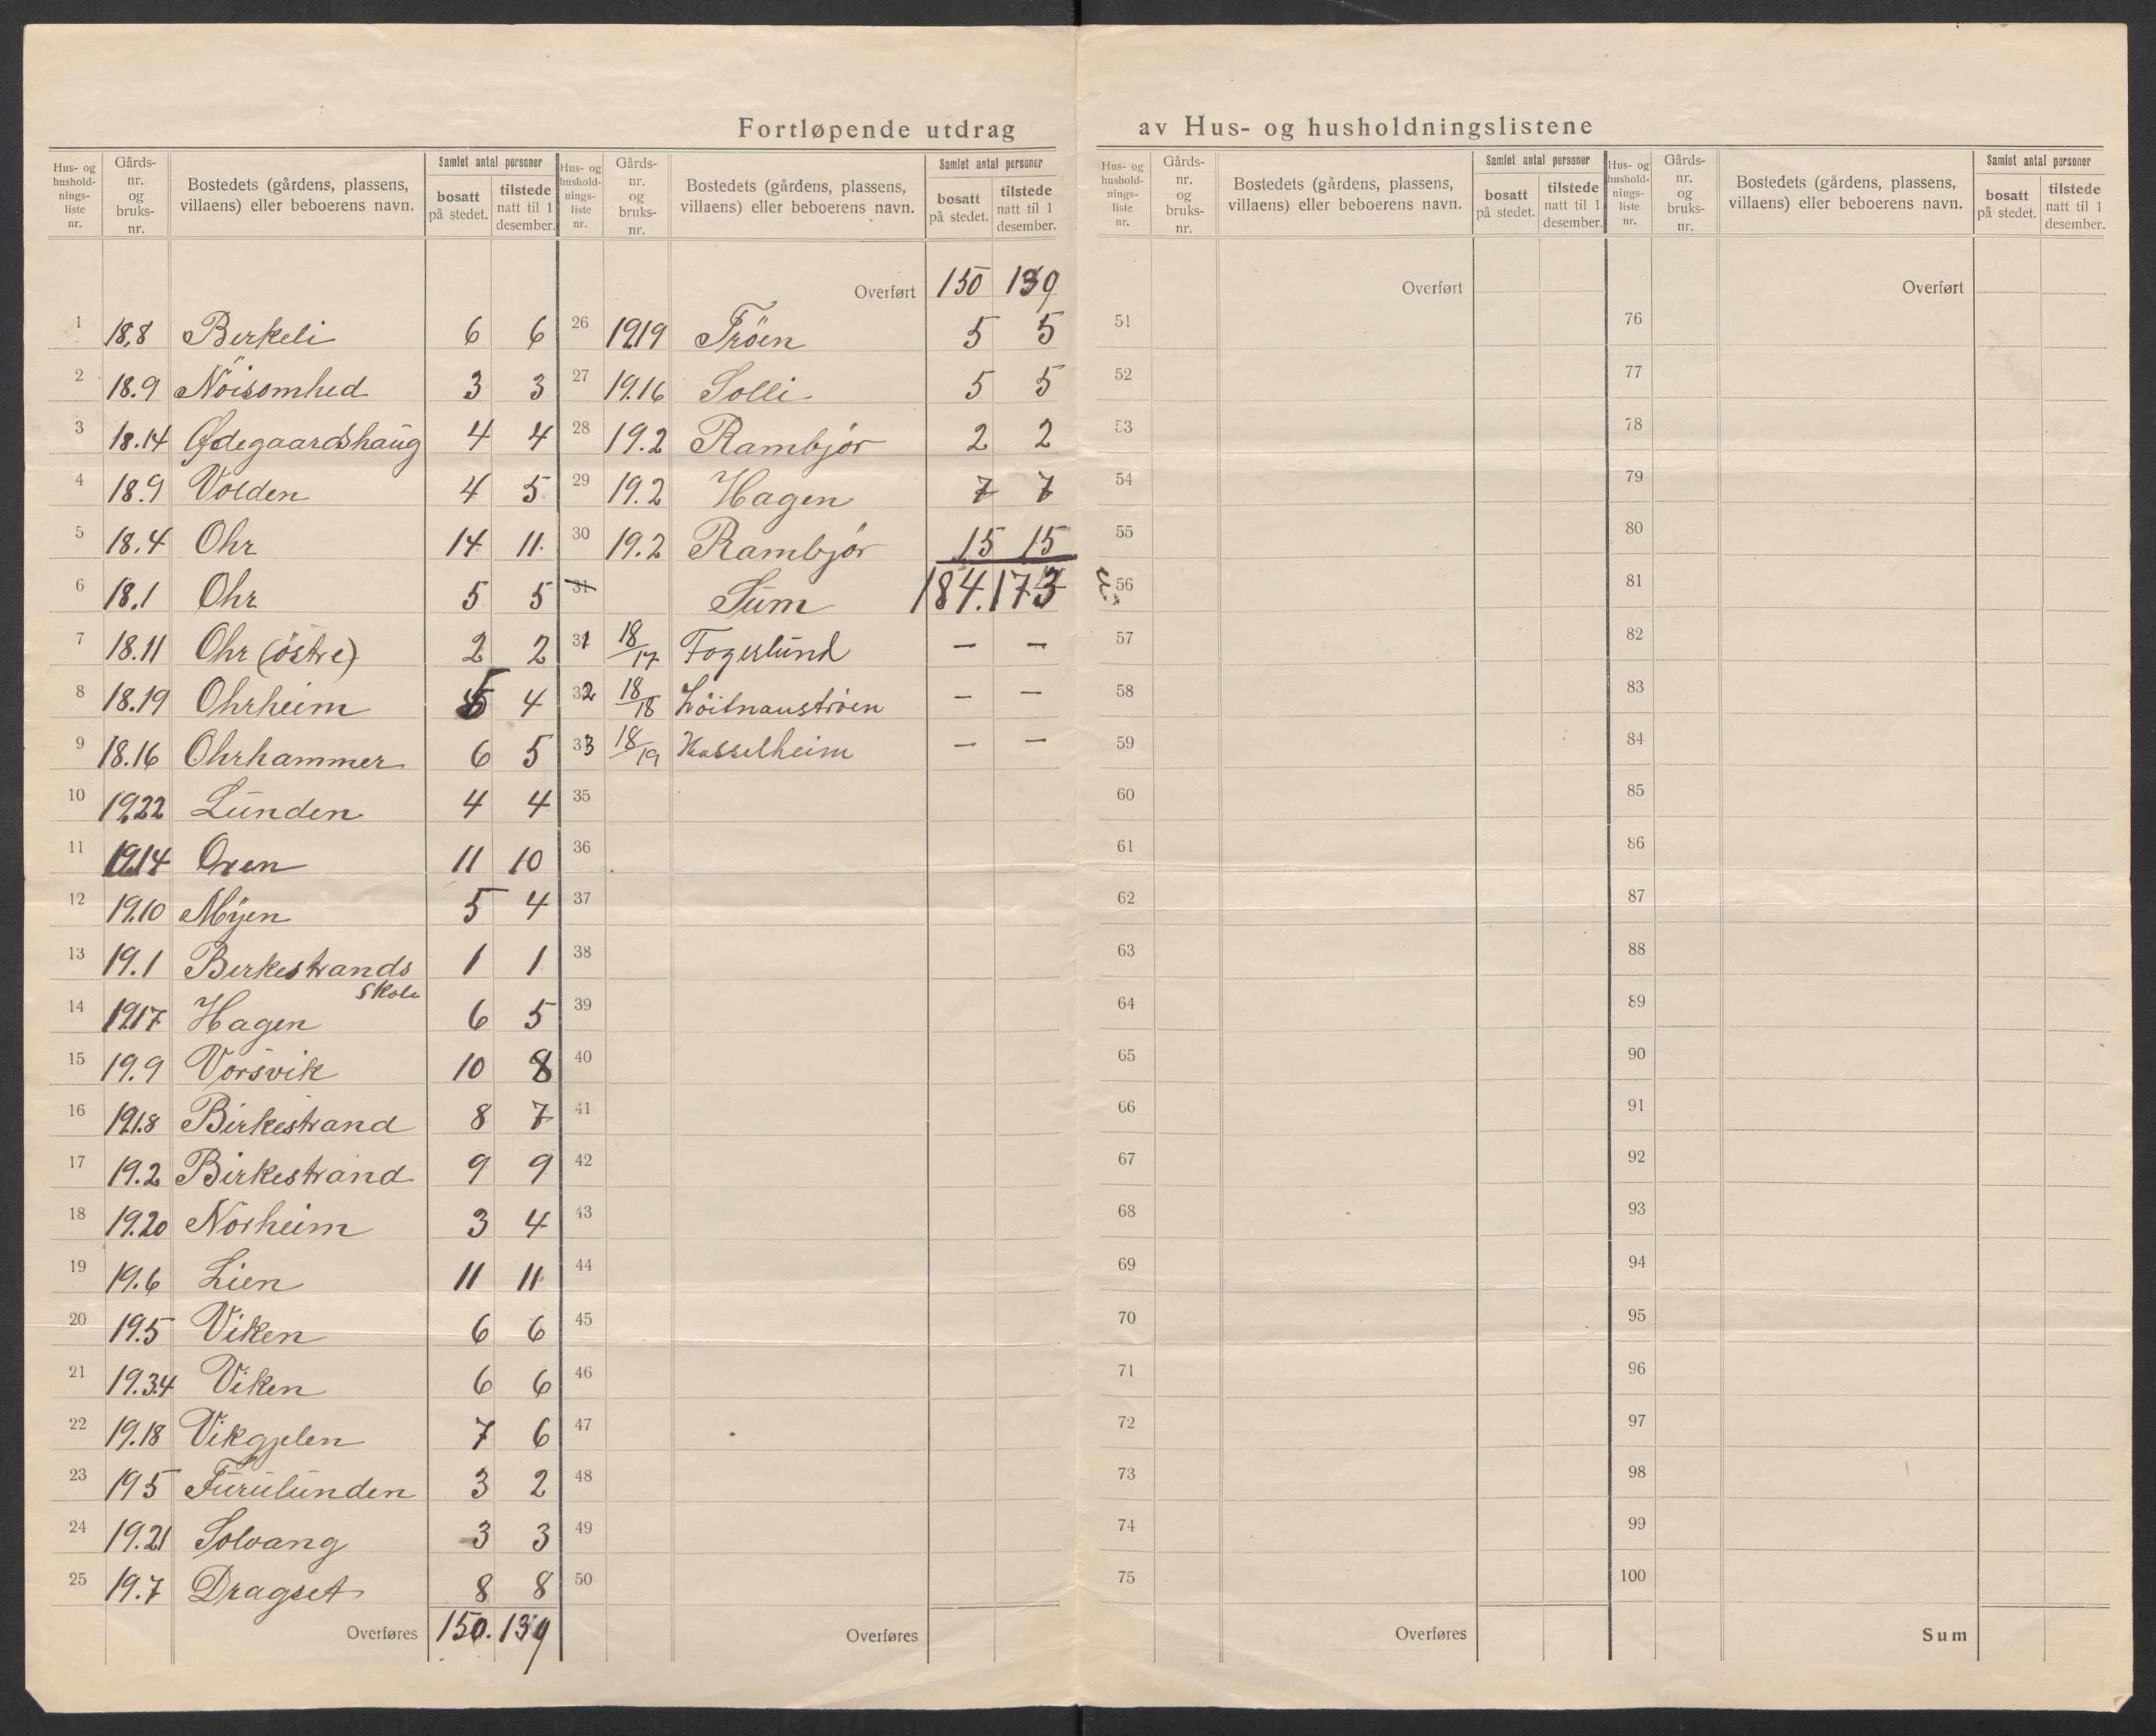 Fortløpende utdrag av Hus- og husholdningslistene
Hus- og husholdnings-liste nr. | Gårds-nr. og bruks-nr. | Bostedets (gårdens, plassens, villaens) eller beboerens navn. | Samlet antal personer | bosatt på stedet. | tilstede natt til 1 desember.
1 18,8 Birkeli 6 6
2 18.9 Nöisomhed 3 3
3 18.14 Ødegaardshaug 4 4
4 18.9 Volden 4 5
5 18.4 Ohr 14 11.
6 18.1 Ohr 5 5
7 18.11 Ohr (östre) 2 2
8 18.19 Ohrheim 5 4
9 18.16 Ohrhammer 6 5
10 19,22 Lunden 4 4
11 19.14 Oren 11 10
12 19.10 Myen 5 4
13 19.1 Birkestrands skole 1 1
14 19.17 Hagen 6 5
15 19.9 Vorsvik 10 8
16 19.1.8 Birkestrand 8 7
17 19.2 Birkestrand 9 9
18 19.20 Norheim 3 4
19 19.6 Lien 11 11
20 19.5 Viken 6 6
21 19.3.4 Viken 6 6
22 19.18 Vikgjelen 7 6
23 19.5 Furulunden 3 2
24 19.21 Solvang 3 3
25 19.7 Dragset 8 8
Overføres 150. 139
Hus- og husholdnings-liste nr. | Gårds-nr. og bruks-nr. | Bostedets (gårdens, plassens, villaens) eller beboerens navn. | Samlet antal personer | bosatt på stedet. | tilstede natt til 1 desember.
Overført 150 139
26 19.19 Tröen 5 5
27 19.16 Solli 5 5
28 19.2 Rambjör 2 2
29 19.2 Hagen 7 7
30 19.2 Rambjör 15 15
31 Sum 184. 173
31 18/17 Fogerlund — —
32 18/18 — —
33 18/19 Hasselheim — —
35
36
37
38
39
40
41
42
43
44
45
46
47
48
49
50
Overføres
Hus- og husholdnings-liste nr. | Gårds-nr. og bruks-nr. | Bostedets (gårdens, plassens, villaens) eller beboerens navn. | Samlet antal personer | bosatt på stedet. | tilstede natt til 1 desember.
Overført
51
52
53
54
55
56
57
58
59
60
61
62
63
64
65
66
67
68
69
70
71
72
73
74
75
Overføres
Hus- og husholdnings-liste nr. | Gårds-nr. og bruks-nr. | Bostedets (gårdens, plassens, villaens) eller beboerens navn. | Samlet antal personer | bosatt på stedet. | tilstede natt til 1 desember.
Overført
76
77
78
79
80
81
82
83
84
85
86
87
88
89
90
91
92
93
94
95
96
97
98
99
100
Sum